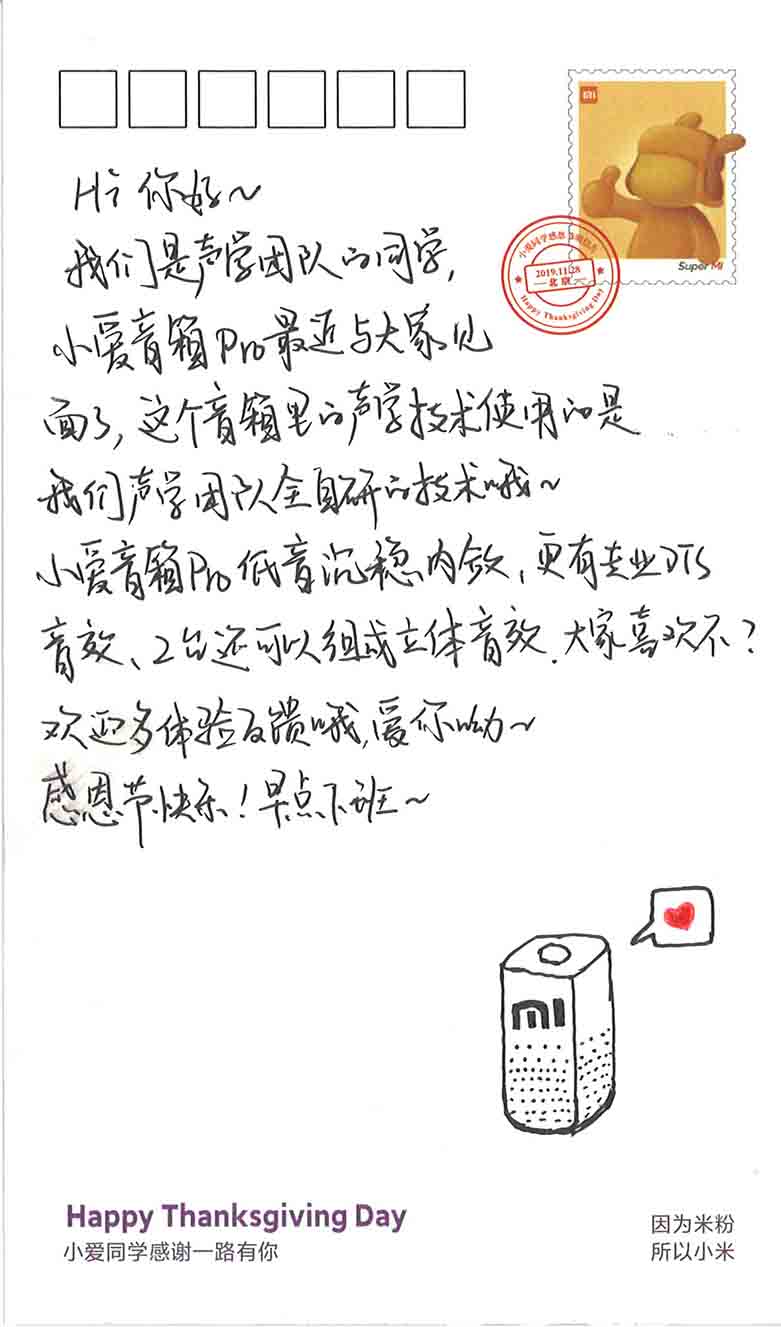 MI
Super Mi
小爱同学感恩
2019.11.28
北京
Happy Thanksgiving Day
Hi 你好~
我们是声学团队的同学,
小爱音箱Pro最近与大家见
面了, 这个音箱里的声学技术使用的是
我们声学团队全自研的技术哦~
小爱音箱Pro低音沉稳内敛、更有专业DTS
音效、2台还可以组成立体音效.大家喜欢不?
欢迎多体验反馈哦,爱你呦~
感恩节快乐!早点下班~
mi
Happy Thanksgiving Day
小爱同学感谢一路有你
因为米粉
所以小米